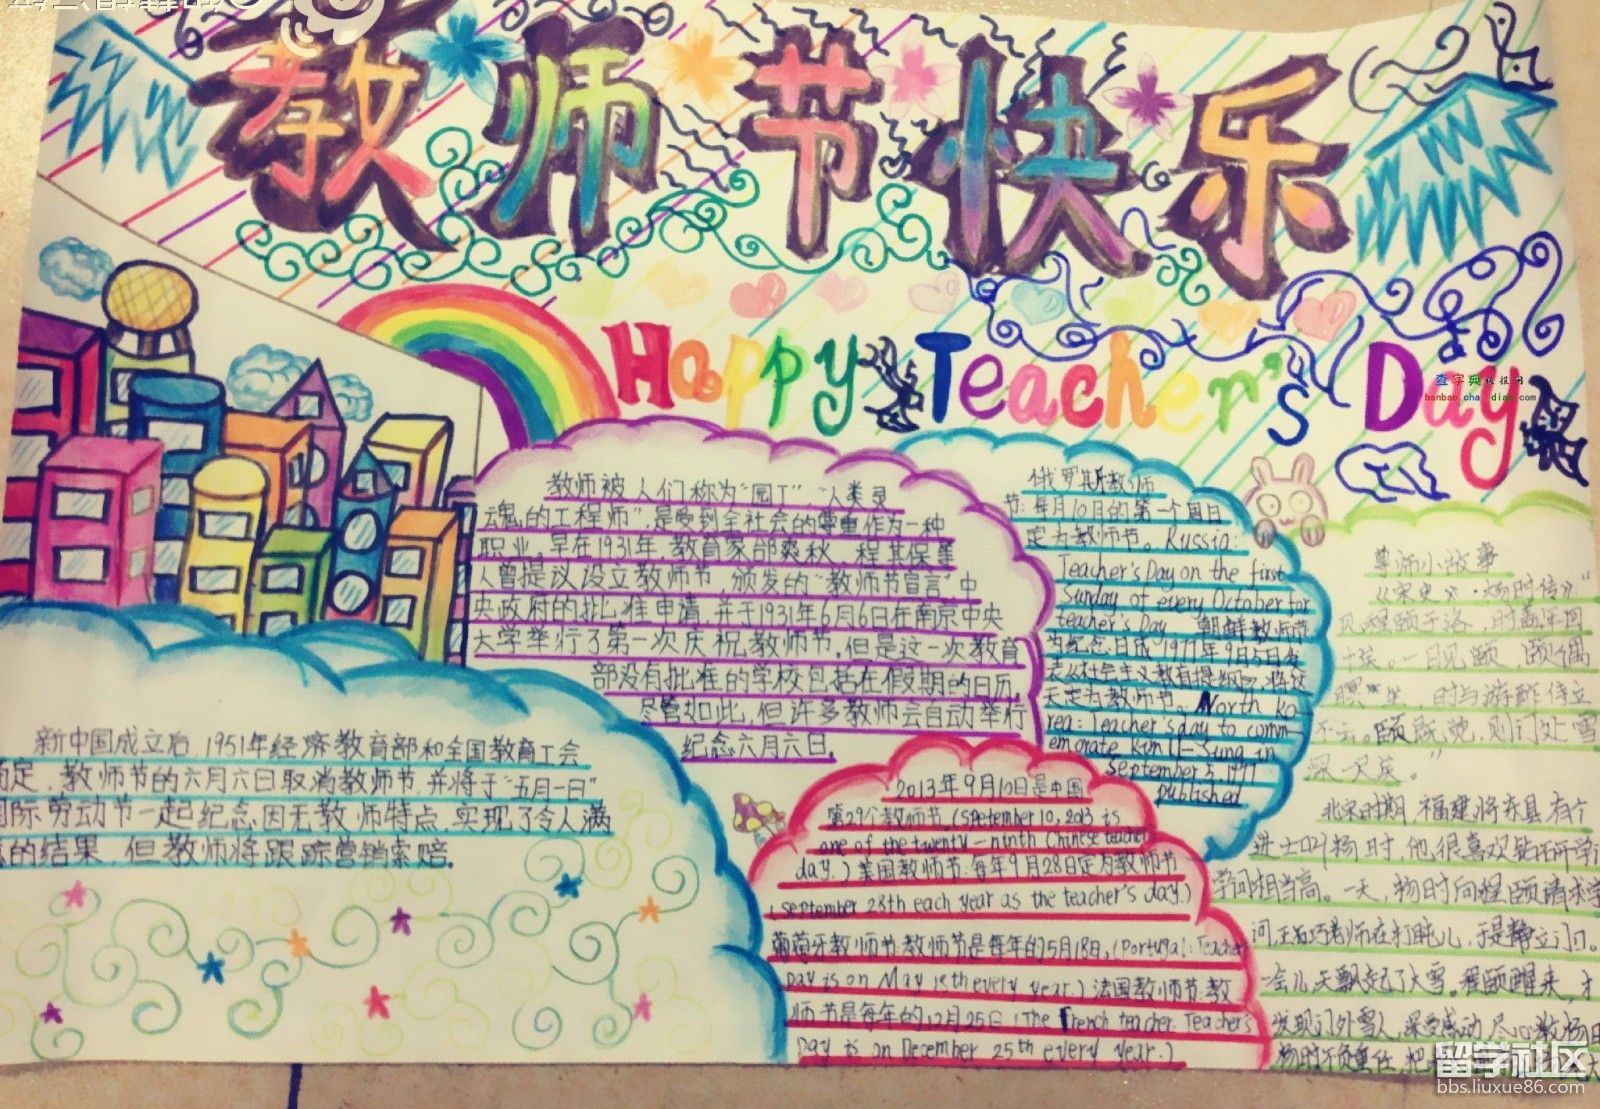 教师节快乐
Happy Teacher's Day
查字典手抄报网
banbao.chazidian.com
教师被人们称为“园丁”、“人类灵
魂的工程师”,是受到全社会的尊重作为一种
职业。早在1931年,教育家邰爽秋、程其保等
人曾提议设立教师节,颁发的“教师节宣言”中
央政府的批准申请,并于1931年6月6日在南京中央
大学举行了第一次庆祝教师节。但是这一次教育
部没有批准的学校包括在假期的日历,
尽管如此,但许多教师会自动举行
纪念六月六日。
俄罗斯教师
节:每月10月的第一个周日
定为教师节。Russia:
Teacher's Day on the first
Sunday of every October for
teacher's Day. 朝鲜教师节
为纪念日成1977年9月5日发
表 社会主义教育提纲 将这
天定为教师节。North Ko
rea: Teacher's day to comm-
emorate Kim Il-Sung in
September 5, 1977
published
新中国成立后,1951年经济教育部和全国教育工会
商定,教师节的六月六日取消教师节,并将于“五月一日”
国际劳动节一起纪念因无教师特点,实现了令人满
意的结果,但教师将跟踪营销索赔。
2013年9月10日是中国
第29个教师节。(September 10, 2013 is
one of the twenty-ninth Chinese teachers
day.)美国教师节:每年9月28日定为教师节
(September 28th each year as the teacher's day.)
葡萄牙教师节:教师节是每年的5月18日,(Portugal: Teacher
Day is on May 18th every year.)法国教师节:教
师节是每年的12月25日(The French teacher. Teacher's
Day is on December 25th every year.)
尊师小故事
《宋史》·杨时传》“
见程颐于洛,时盖年四
十矣。一日见颐,颐偶
瞑坐,时与游酢侍立
不去。颐既觉,则门外雪
深一尺矣。”
北宋时期,福建将乐县有个
进士叫杨时,他很喜欢钻研学
学问相当高。一天,杨时向程颐请求学
问,正巧老师在打盹儿,于是静立门口。
一会儿天飘起了大雪。程颐醒来,才
发现门外雪人,深受感动,尽心教杨时
杨时不负重任,把
留学社区
bbs.liuxue86.com